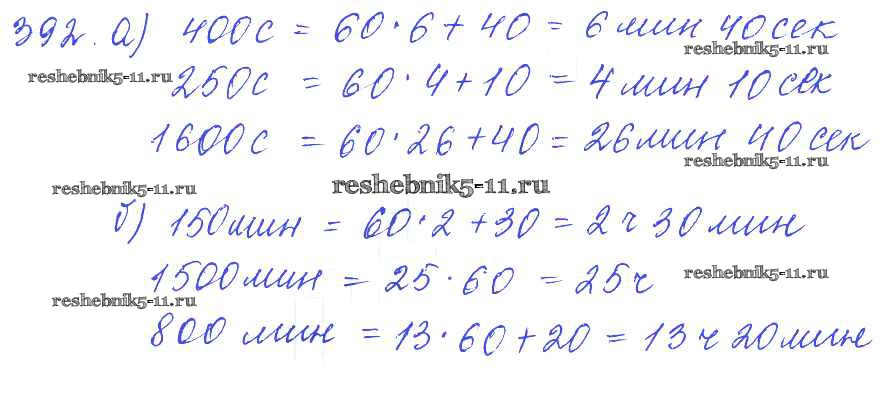 392. а) 400с = 60·6 + 40 = 6 мин 40 сек
reshebnik5-11.ru
reshebnik5-11.ru
250с = 60·4 + 10 = 4 мин 10 сек
1600с = 60·26 + 40 = 26 мин 40 сек
reshebnik5-11.ru
reshebnik5-11.ru
reshebnik5-11.ru
б) 150мин = 60·2 + 30 = 2 ч 30 мин
1500мин = 25·60 = 25ч
reshebnik5-11.ru
reshebnik5-11.ru
800 мин = 13·60 + 20 = 13 ч 20 мин